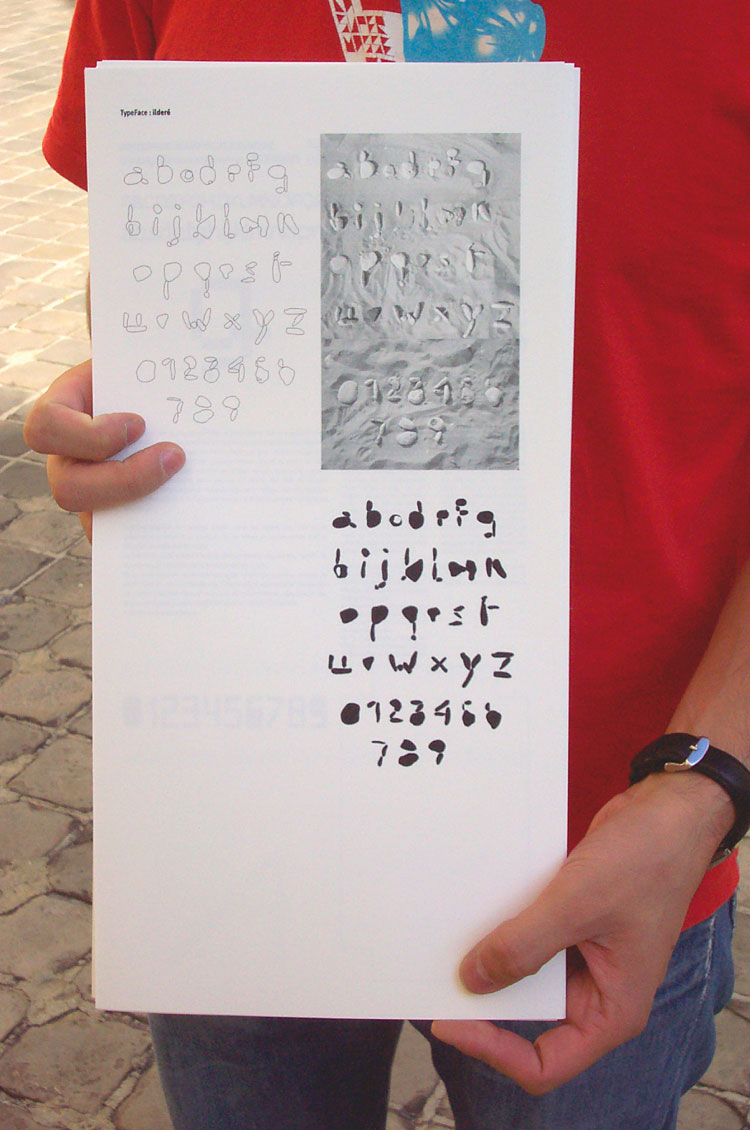 TypeFace : ilderé
a b c d e f g
h i j k l m n
o p q r s t
u v w x y z
0 1 2 3 4 5 6
7 8 9
a b c d e f g
h i j k l m n
o p q r s t
u v w x y z
0 1 2 3 4 5 6
7 8 9
a b c d e f g
h i j k l m n
o p q r s t
u v w x y z
0 1 2 3 4 5 6
7 8 9
0123456789